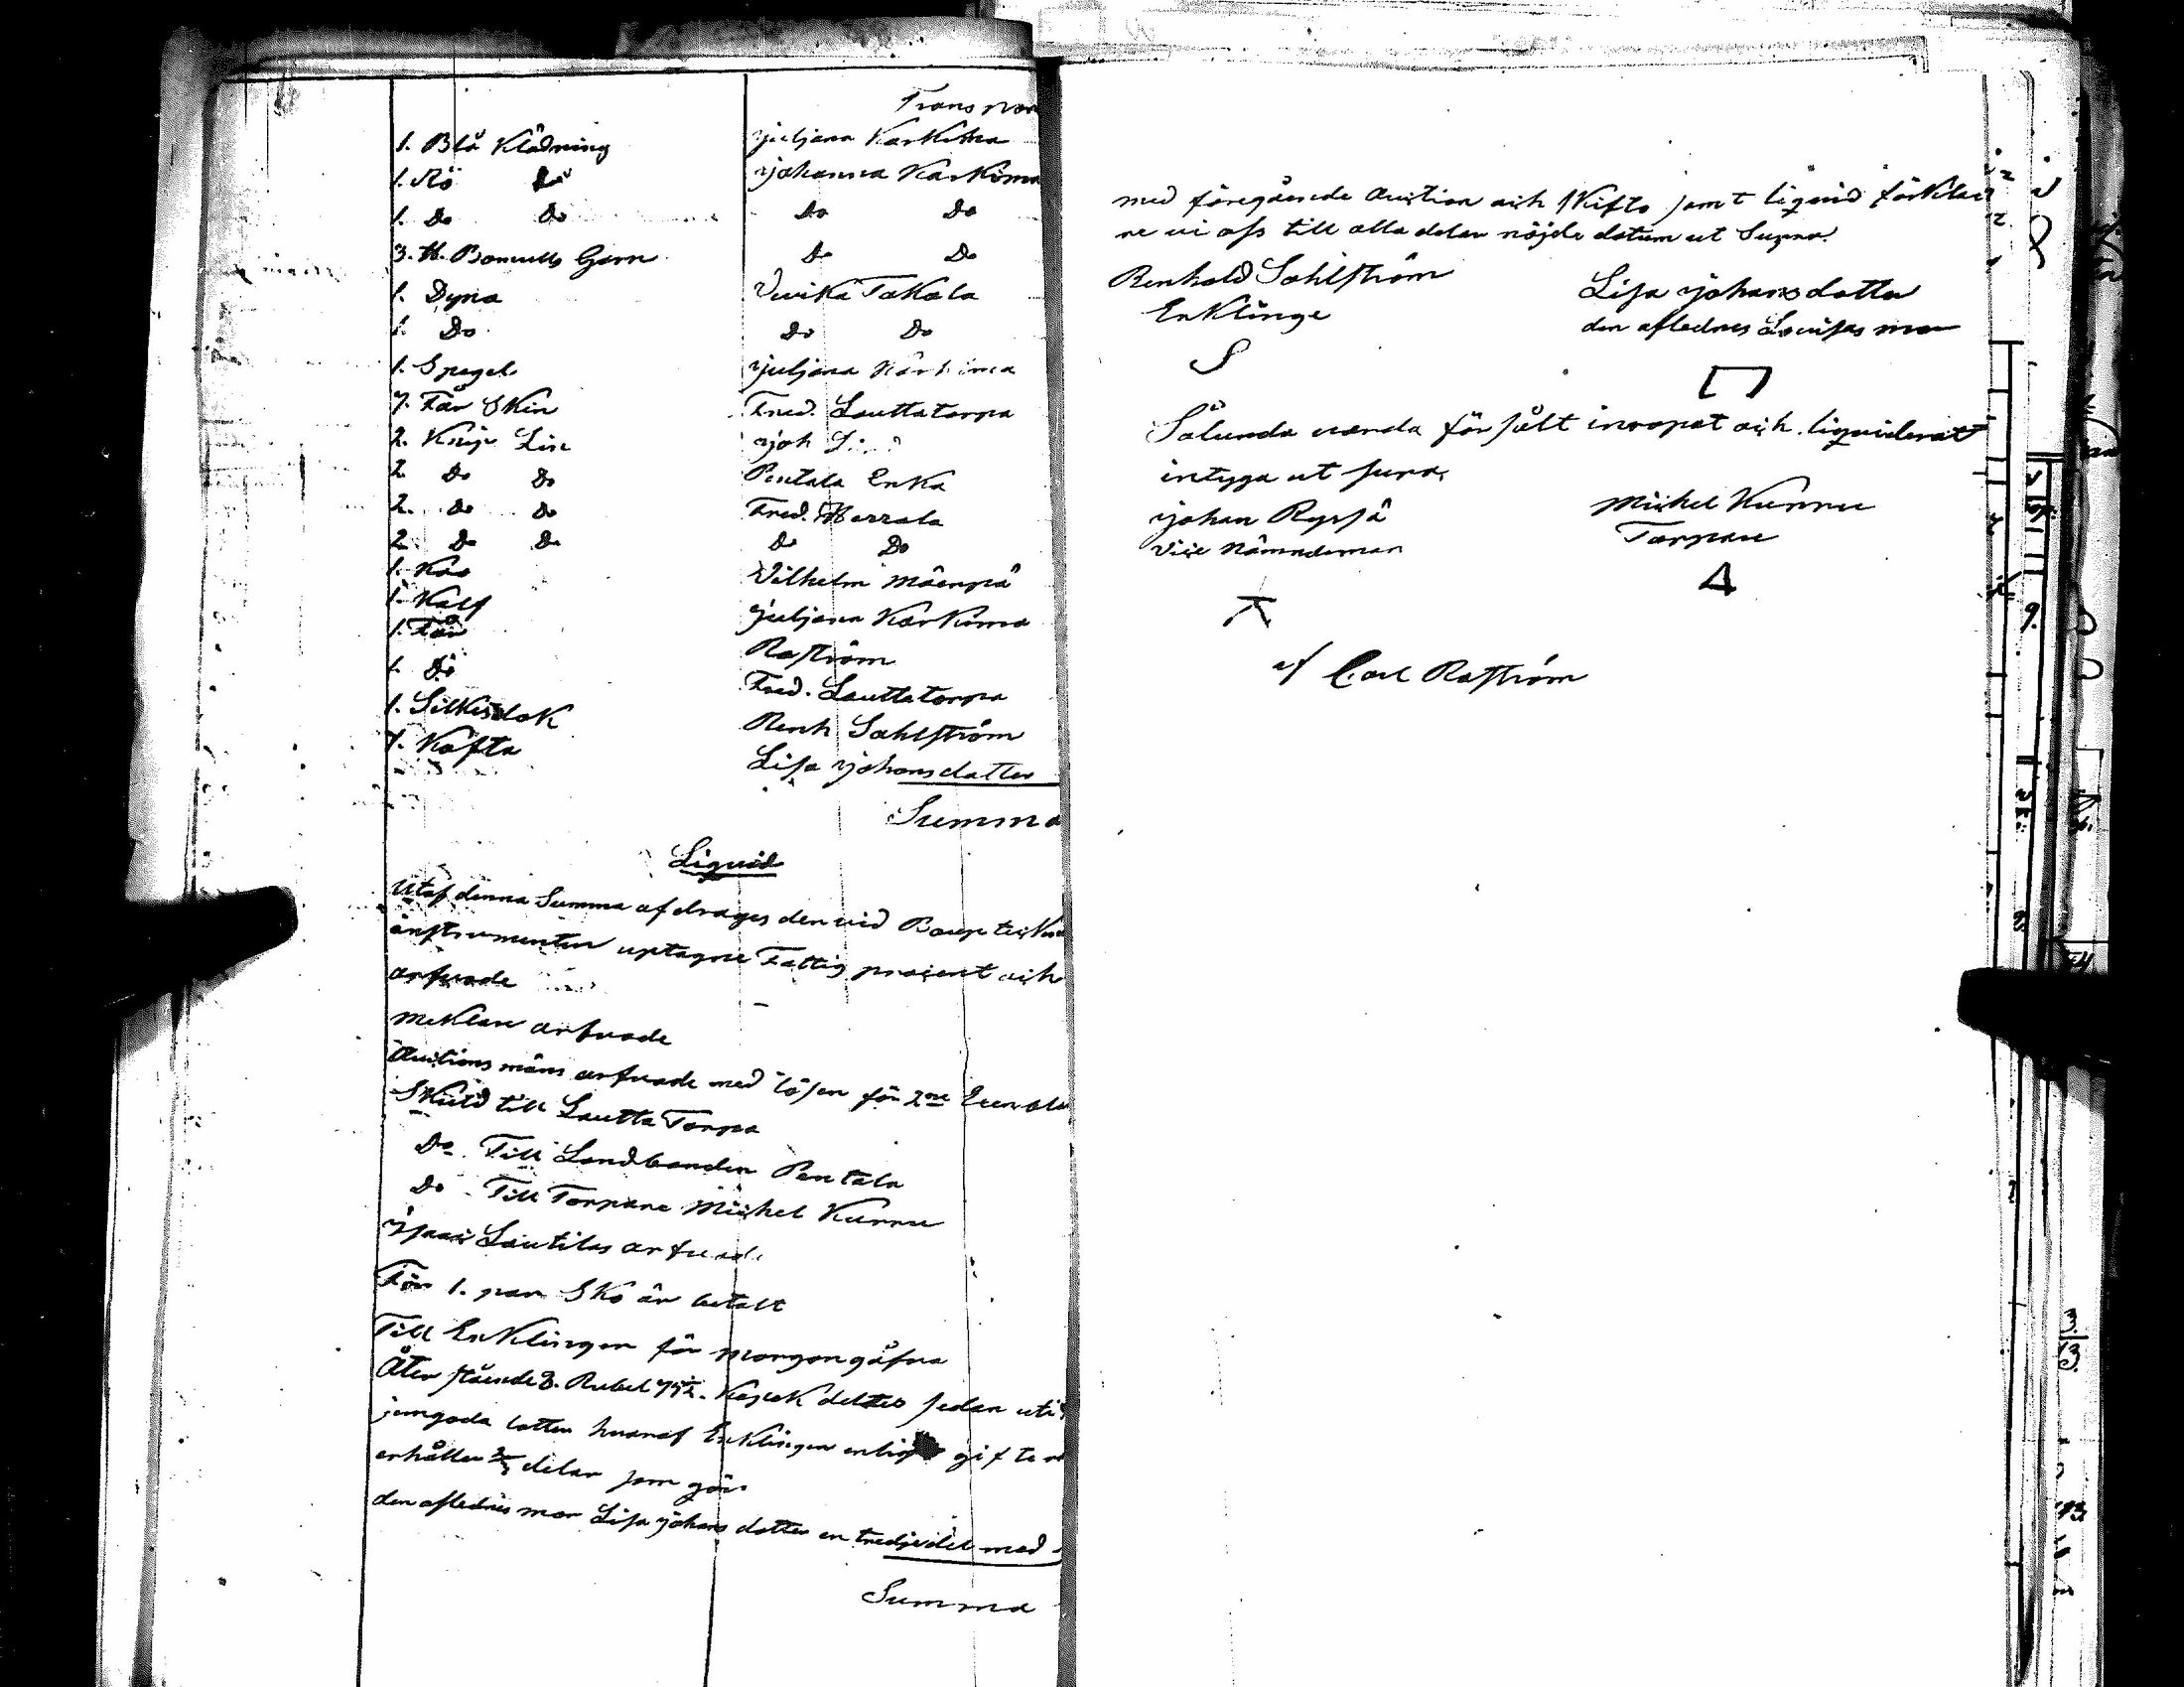 Transpor
1. Blå Klädning juljana Karkima
1. Rö Do johanna Karkima
1. Do Do Do Do
3. ℔. Bomulls Garn Do Do
1. Dyna Vivika Takala
1. Do Do Do
1. Spegel juljana Karkima
7. Får Skin Fred. Lauttatorpa
2. Lin joh
2 Do Do Pentala Enka
2. Do Do Fred.
2 Do Do Do Do
1. Ko Vilhelm Mäenpä
1. Kalf juljana Karkima
1. Får Raström
1 Do Fred. Lauttatorpa
1. Silkesdok Renh Sahlström
1. Kofta Lisa johansdotter
Summa
Liquid
Utaf denna Summa afdrages den vid
instrumenten uptagne Fattig procent och
arfvode
Meklare arfvode
Auctions mäns arfvode med lösen för 2ne
Skuld till Lautta Torpa
Do Till Landbonden Pentala
Do Till Torpare Michel Kurru
Isaac Lautilas arfvode
För 1. par Sko är betalt
Till Enklingen för morgongåfva
Återstående 8. Rubel 75½. Kopek deltes sedan uti
jemgoda lotter hvaraf Enklingen enligt gifto
erhåller ⅔ delar som gör
den aflednes mor Lisa johans dotter en tredjedel med
Summa
med föregående Auction och skifte samt liquid förklar
re vi oss till alla delar nöjde datum ut Supra.
Renhold Sahlström Lisa johansdotter
Enklinge den aflednes Lovisas mor
Sålunda vara försålt inropat och liquiderat
intyga ut supra
johan Rypsä Michel Kurru
Vice Nämndeman Torpare
af Carl Raström